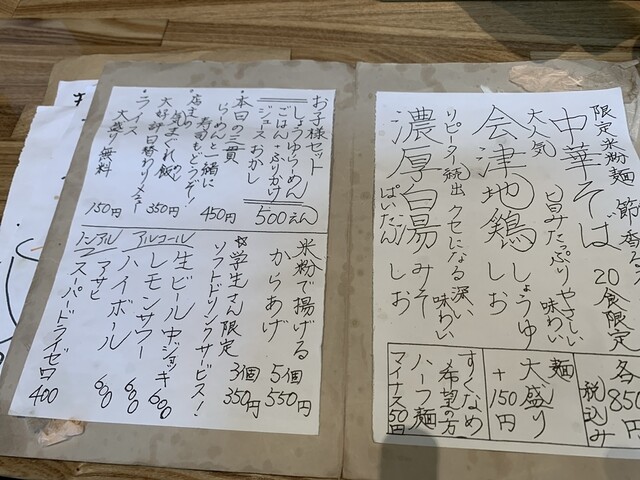 限定米粉麺
20食限定
中華そば
旨みたっぷり やさしい味わい
大人気
会津地鶏 しょうゆ しお
リピーター続出 クセになる深い味わい
濃厚白湯 みそ しお
ぱいたん
各850円
税込み
麺
大盛り
+150円
すくなめ
希望の方
ハーフ麺
マイナス50円
お子様セット
しょうゆらーめん
ごはん+ふりかけ
ジュース おかし
500えん
・本日の二貫
らーめんと一緒に
寿司もどうぞ!
450円
・店主の気まぐれ飯
大好評日替わりメニュー
350円
・ライス
大盛り無料
150円
米粉で揚げる
からあげ
5個 550円
3個 350円
☆学生さん限定
ソフトドリンクサービス!
アルコール
生ビール中ジョッキ 600
レモンサワー 600
ハイボール 600
ノンアル
アサヒ
スーパードライゼロ 400